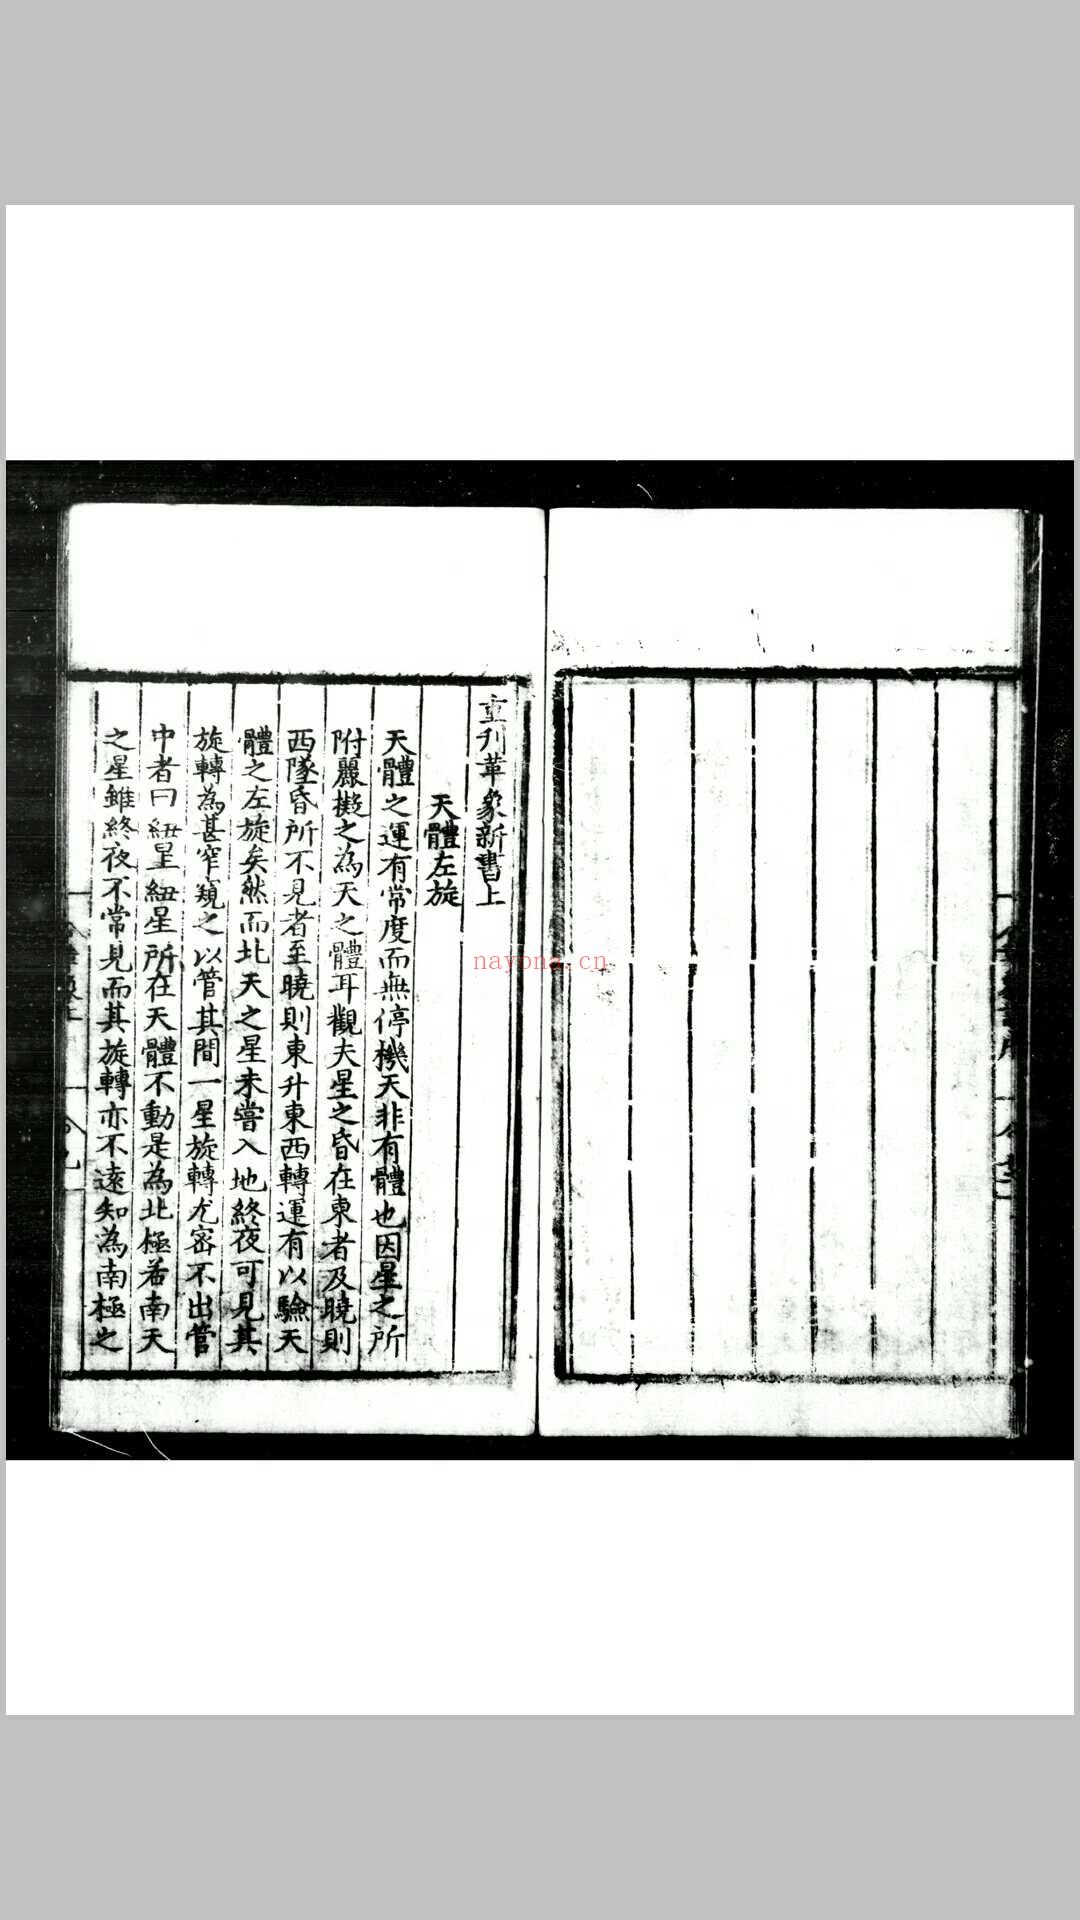 重刊革象新書上
天體左旋
天體之運有常度而無停機天非有體也因星之所
附麗擬之為天之體耳觀夫星之昏在東者及曉則
西墜昏所不見者至曉則東升東西轉運有以驗天
體之左旋矣然而北天之星未嘗入地終夜可見其
旋轉為甚窄窺之以管其間一星旋轉尤密不出管
中者曰紐星紐星所在天體不動是為北極若南天
之星雖終夜不常見而其旋轉亦不遠知為南極之
nayona.cn